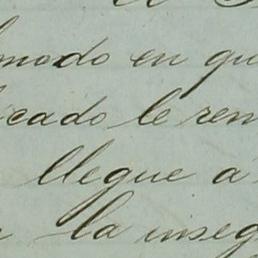 modo en qu
cado le ren
llegue a
la inseg